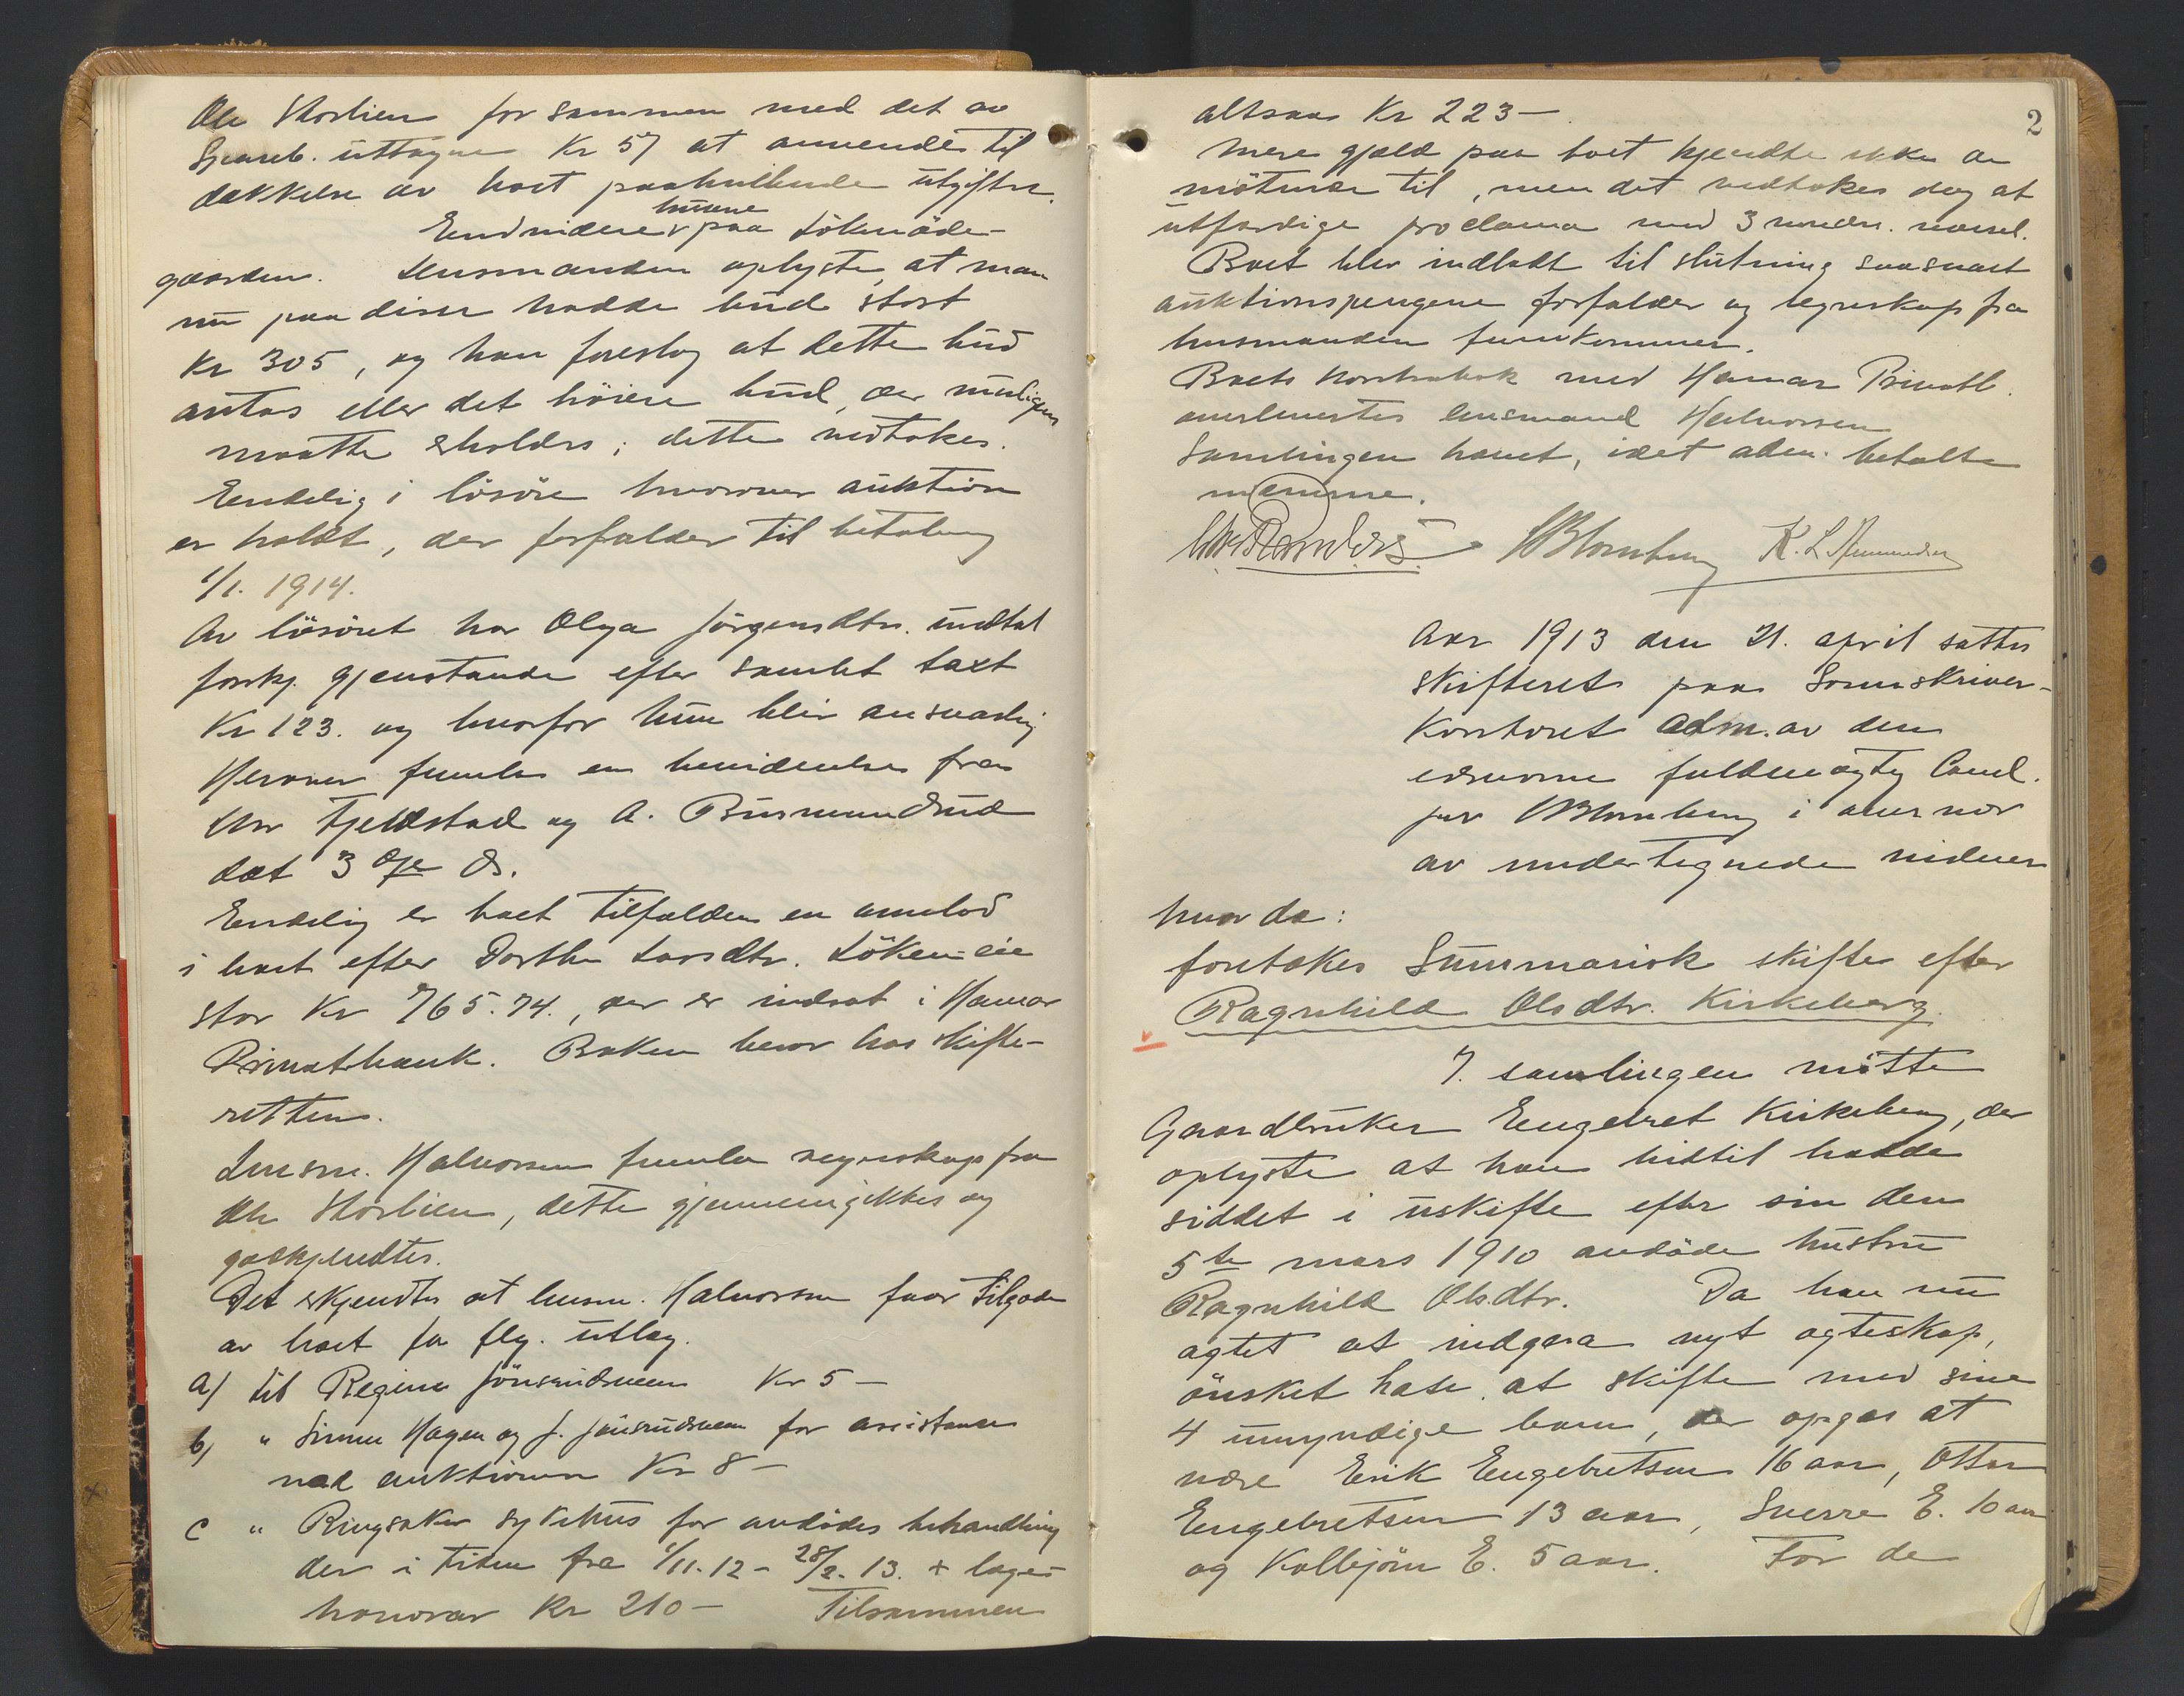 Ole Storlien for sammen med det av
Spareb. uttagne Kr 57 at anvendes til
dækkelse av boet paahvilende utgifter.
Endvidere husene paa Lökenöde-
gaarden. Lensmanden oplyste, at man
nu paa disse hadde bud stort
Kr 305, og han foreslog at dette bud
antas eller det höiere bud, der muligens
maatte erholdes; dette vedtokes.
Endelig i lösöre hvorover auktion
er holdt, der forfalder til betaling
1/1. 1914.
Av lösöret har Olga Jörgensdtr. uttat
forskj. gjenstande efter samlet taxt
Kr 123. og hvorfor hun blir ansvarlig
Herover fremla en henvendelse fra
Fjeldstad og A. Busmundrud
dat 3 ds.
Endelig er boet tilfalden en arvelod
i boet efter Dorthe Larsdtr. Löken-eie
stor Kr 765.74., der er indsat i Hamar
Privatbank. Boken beror hos skifte-
retten.
Lensm. Halvorsen fremla regnskap fra
Ole Storlien, dette gjennemgikkes og
godkjendtes.
Det erkjendtes at lensm. Halvorsen faar tilgode
av boet for flg. utlæg.
a) til Regine Jönsrudsveen Kr 5 —
b) " Simen Hagen og J. Jönsrudsveen for assistanse
ved auktionen Kr 8 —
c " Ringsaker sykehus for avdödes behandling
der i tiden fra 1/11.12 - 28/2. 13. + læge-
honorar Kr 210 — Tilsammen
2
altsaa Kr 223 —.
Mere gjæld paa boet kjendte ikke de
mötende til, men det vedtokes dog at
utfærdige proclama med 3 mndrs. varsel.
Boet blev indladt til slutning saasnart
auktionspengene forfalder og regnskap fra
lensmanden fremkommer.
Boets kontrabok med Hamar Privatb.
overlevertes lensmand Halvorsen
Samlingen hævet, idet adm. betalte
vidnerne.
Blomberg K. L. Amundsen
Aar 1913 den 21. april sattes
skifteret paa Sorenskriver-
kontoret adm. av den
edsvorne fuldmægtig Cand.
jur Blomberg i overvær
av undertegnede vidner
hvor da:
foretokes Summarisk skifte efter
Ragnhild Olsdtr. Kirkeberg.
I. samlingen mötte
Gaardbruker Engebret Kirkeberg, der
oplyste at han hittil hadde
siddet i uskifte efter sin den
5te mars 1910 avdöde hustru
Ragnhild Olsdtr. Da han nu
agtet at indgaa nyt egteskap,
önsket han at skifte med sine
4 umyndige barn, der opgas at
være Erik Engebretsen 16 aar, Ottar
Engebretsen 13 aar, Sverre E. 10 aar
og Kolbjörn E. 5 aar. For de